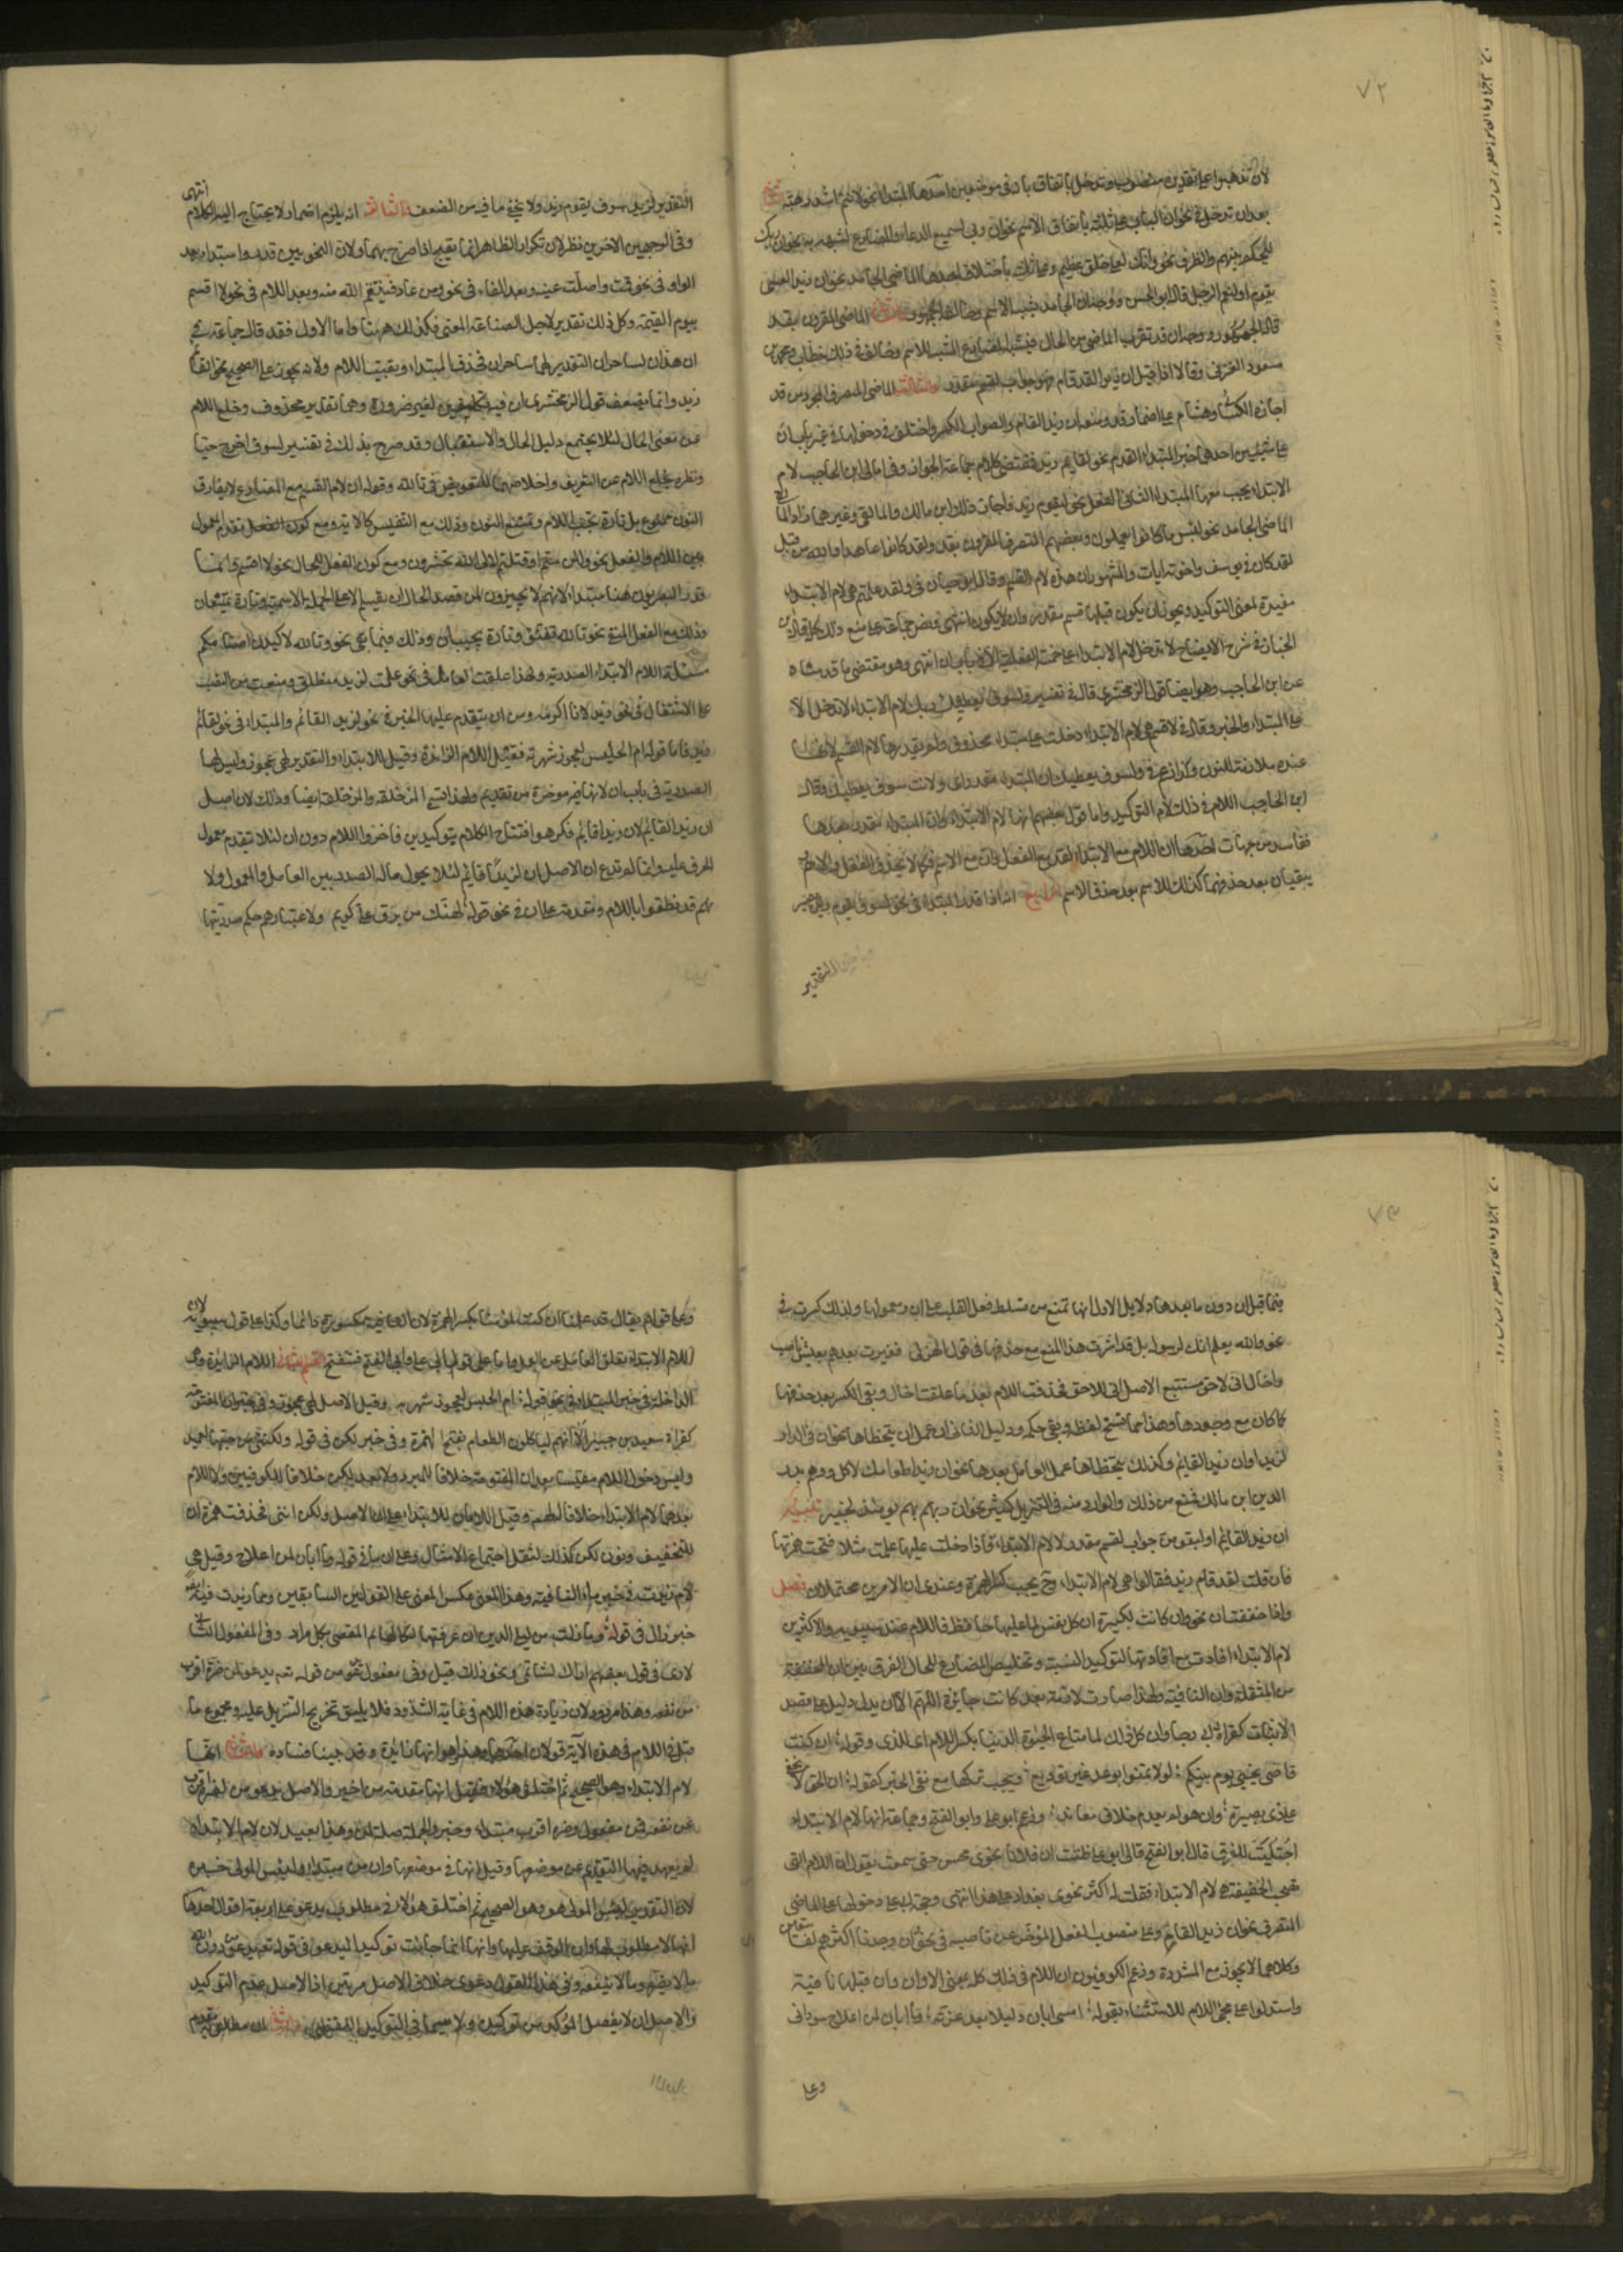 ٧٢
بعد ان تدخل في نحو ان الباب على ثلثة باتفاق الاسم نحو ان ربي لسميع الدعاء والمضارع لشبهه به نحو وان ربك
ليحكم بينهم والظرف نحو وانك لعلى خلق عظيم وعلى ثلثة باختلاف احدها الماضي الجامد نحو ان زيدا لعسى
يقوم او لنعم الرجل قاله ابو الحسن ووجهه ان الجامد يشبه الاسم وخالفه الجمهور والثاني الماضي المقرون بقد
قاله الجمهور ووجهه ان قد تقرب الماضي من الحال فيشبه المضارع المشبه للاسم وخالف في ذلك خطاب ومحمد بن
مسعود الغزني وقالا اذا قيل ان زيدا لقد قام فهو جواب لقسم مقدر والثالث الماضي المتصرف المجرد من قد
اجازه الكسائي وهشام على اضمار قد ومنعه
على شيئين احدهما خبر المبتداء المقدم نحو لقائم زيد فمقتضى كلام جماعة الجواز وفي امالي ابن الحاجب لام
الابتداء يجب معها المبتداء الثاني الفعل نحو ليقوم زيد فاجاز ذلك ابن مالك والمالقي وغيرهما زاد المالقي
الماضي الجامد نحو لبئس ما كانوا يعملون وبعضهم المتصرف المقرون بقد نحو ولقد كانوا عاهدوا الله من قبل
لقد كان في يوسف واخوته ايات والمشهور ان هذه لام القسم وقال ابو حيان في ولقد علمتم هي لام الابتداء
مفيدة لمعنى التوكيد ويجوز ان يكون قبلها قسم مقدر وان لا يكون انتهى ونص جماعة على منع ذلك كله قال ابن
الخباز في شرح الايضاح لا تدخل لام الابتداء على الجمل الفعلية الا في باب ان انتهى وهو مقتضى ما قدمناه
عن ابن الحاجب وهو ايضا قول الزمخشري قال في تفسير ولسوف يعطيك ربك لام الابتداء لا تدخل الا
على المبتداء والخبر وقال في لاقسم هي لام الابتداء دخلت على مبتداء محذوف ولم يقدرها لام القسم لانها
عنده ملازمة للنون وكذا زعم في ولسوف يعطيك ان المبتداء مقدر اي ولانت سوف يعطيك وقال
ابن الحاجب اللام في ذلك لام التوكيد واما قول بعضهم انها لام الابتداء وان المبتداء مقدر بعدها
ففاسد من جهات احدها ان اللام مع الابتداء كقد مع الفعل وان مع الاسم فكما لا يحذف الفعل والاسم
يبقيان بعد حذفهما كذلك اللام بعد حذف الاسم والثاني انه اذا قدر المبتداء في نحو لسوف يقوم زيد يصير
التقدير
التقدير لزيد سوف يقوم زيد ولا يخفى ما فيه من الضعف والثالث انه يلزم اضمار لا يحتاج اليه الكلام انتهى
وفي الوجهين الاخيرين نظر لان تكرار الظاهر انما يقبح اذا صرح بهما ولان النحويين قدروا مبتداء بعد
الواو في نحو قمت واصك عينه وبعد الفاء في نحو ومن عاد فينتقم الله منه وبعد اللام في نحو لا اقسم
بيوم القيمة وكل ذلك تقدير لاجل الصناعة دون المعنى فكذلك ههنا واما الاول فقد قال جماعة في
ان هذان لساحران التقدير لهما ساحران فحذف المبتداء وبقيت اللام ولانه يجوز على الصحيح نحو لقائم
زيد وانما يضعف قول الزمخشري ان فيه تكلفين لغير ضرورة وهما تقدير محذوف وخلع اللام
عن معنى الحال لئلا يجتمع دليل الحال والاستقبال وقد صرح بذلك في تفسير لسوف اخرج حيا
ونظره بخلع اللام عن التعريف واخلاصها للتعويض في يا الله وقوله ان لام القسم مع المضارع لا يفارق
النون ممنوع بل تارة تجب اللام وتمتنع النون وذلك مع التنفيس كالاية ومع كون الفعل تقدم المعمول
بين اللام والفعل نحو ولئن متم او قتلتم لالى الله تحشرون ومع كون الفعل للحال نحو لا اقسم وانما
قدر البصريون هنا مبتداء لانهم لا يجيزون لمن قصد الحال ان يقسم الا على الجملة الاسمية وتارة يمتنعان
وذلك مع الفعل المنفي نحو تالله تفتؤ وتارة يجبان وذلك فيما بقي نحو وتالله لاكيدن اصنامكم
مسئلة اللام الابتداء الصدرية ولهذا علقت العامل في نحو علمت لزيد منطلق ومنعت من النصب
على الاشتغال في نحو زيد لانا اكرمه ومن ان يتقدم عليها الخبر في نحو لزيد القائم والمبتداء في نحو لقائم
زيد فاما قوله ام الحليس لعجوز شهربة فقيل اللام الزائدة وقيل للابتداء والتقدير لهي عجوز وليس لها
الصدرية في باب ان لانها فيه مؤخرة من تقديم ولهذا تسمى المزحلقة والمزحلفة ايضا وذلك لان اصل
ان زيدا لقائم لان زيدا قائم فكرهوا افتتاح الكلام بتوكيدين فاخروا اللام دون ان لئلا يتقدم معمول
الحرف عليه وانما لم ندع ان الاصل ان لزيدا قائم لئلا يحول ماله الصدر بين العامل والمعمول ولا
نهم قد نطقوا باللام ومقدمة على ان في نحو قوله لهنك من برق علي كريم ولاعتبارهم حكم صدريتها
٧٣
فيما قبل ان دون ما بعدها دلايل الاول انها تمنع من تسلط فعل القلب على ان ومعمولها ولذلك كسرت في
نحو والله يعلم انك لرسوله بل قد اثرت هذا المنع مع حذفها في قول الهذلي فغبرت بعدهم بعيش ناصب
واخال اني لاحق مستتبع الاصل اني للاحق فحذفت اللام بعد ما علقت اخال وبقي الكسر بعد حذفها
كما كان مع وجودها وهذا مما نسخ لفظه وبقي حكمه ودليل الثاني ان عمل ان يتخطاها نحو ان في الدار
لزيدا وان زيدا لقائم وكذلك يتخطاها عمل العامل بعدها نحو ان زيدا طعامك لاكل ووهم بدر
الدين ابن مالك فمنع من ذلك والوارد منه في التنزيل كثير نحو ان ربهم بهم يومئذ لخبير تنبيه
ان زيدا لقام او ليقومن جواب لقسم مقدر لا لام الابتداء فاذا دخلت عليها علمت مثلا فتحت همزتها
فان قلت لقد قام زيد فقالوا هي لام الابتداء وح يجب كسر الهمزة وعندي ان الامرين محتملان فصل
واذا خففت ان نحو وان كانت لكبيرة ان كل نفس لما عليها حافظ فاللام عند سيبويه والاكثرين
لام الابتداء افادت مع افادتها لتوكيد النسبة وتخليص المضارع للحال الفرق بين ان المخففة
من المثقلة وان النافية ولهذا صارت لازمة بعد ان كانت جائزة اللهم الا ان يدل دليل على قصد
الاثبات كقراءة ابي رجا وان كل ذلك لما متاع الحيوة الدنيا بكسر اللام اي للذي وقوله ان كنت
قاضي نحبي يوم بينكم لو لا تمنوا بوعد غير توديع ويجب تركها مع نفي الخبر كقوله ان الحق لا يخفى
على ذي بصيرة وان هو لم يعدم خلاف معاند وزعم ابو علي وابو الفتح وجماعة انها لام الابتداء
اجتلبت للفرق قال ابو الفتح قال لي ابو علي ظننت ان فلانا نحوي محسن حتى سمعته يقول ان اللام التي
تصحب الخفيفة هي لام الابتداء فقلت له اكثر نحوي بغداد على هذا انتهى وحجة ابي علي دخولها على الماضي
المتصرف نحو ان زيد لقام وعلى منصوب الفعل المؤخر عن ناصبه في نحو ان وجدنا اكثرهم لفاسقين
وكلاهما لا يجوز مع المشددة وزعم الكوفيون ان اللام في ذلك كله بمعنى الا وان وان قبلها نافية
واستدلوا على مجئ اللام للاستثناء بقوله امسى ابان ذليلا بعد عزته وما ابان لمن اعلاج سودان
وعلى
وعلى قولهم يقال قد علمنا ان كنت لمؤمنا بكسر الهمزة لان النافية مكسورة دائما وكذا على قول سيبويه لان
لام الابتداء يعلق العامل عن العمل واما على قول ابي علي وابي الفتح فتفتح القسم الثاني اللام الزايدة وهي
الداخلة في خبر المبتداء في نحو قوله ام الحليس لعجوز شهربه وقيل الاصل لهي عجوز وفي خبر ان المفتوحة
كقراءة سعيد بن جبير الا انهم لياكلون الطعام بفتح الهمزة وفي خبر لكن في قوله ولكنني من حبها لعميد
وليس دخول اللام مقيسا بعد ان المفتوحة خلافا للمبرد ولا بعد لكن خلافا للكوفيين ولا اللام
بعدهما لام الابتداء خلافا لهم وقيل اللامان للابتداء على ان الاصل ولكن انني فحذفت همزة ان
للتخفيف ونون لكن كذلك لثقل اجتماع الامثال وعلى ان ما في قوله وما ابان لمن اعلاج وقيل هي
لام زيدت في خبر ما النافية وهذا المعنى عكس المعنى على القولين السابقين ومما زيدت فيه
خبر زال في قوله وما زلت من ليلى لدن ان عرفتها لكالهائم المقصى بكل مراد وفي المفعول الثاني
لارى في قول بعضهم اراك لشاتمي ونحو ذلك قيل وفي مفعول يدعو من قوله تعالى يدعو لمن ضره اقرب
من نفعه وهذا مردود لان زيادة هذه اللام في غاية الشذوذ فلا يليق تخريج التنزيل عليه ومجموع ما
قيل في اللام في هذه الآية قولان احدهما هذا وهو انها زائدة وقد بينا فساده والثاني انها
لام الابتداء وهو الصحيح ثم اختلف هؤلاء فقيل انها مقدمة من تاخير والاصل يدعو من لضره اقرب
من نفعه فمن مفعول وضره اقرب مبتداء وخبر والجملة صلة لمن وهذا بعيد لان لام الابتداء
لم يعهد فيها التقدم عن موضعها وقيل انها في موضعها وان من مبتداء ولبئس المولى خبره
لان التقدير لبئس المولى هو وهو الصحيح ثم اختلف هؤلاء في مطلوب يدعو على اربعة اقوال احدها
انها لا مطلوب لها وان الوقف عليها وانها انما جاءت توكيدا ليدعو في قوله تعالى يدعو من دون الله
ما لا يضره وما لا ينفعه وفي هذا القول دعوى خلاف الاصل مرتين اذ الاصل عدم التوكيد
والاصل ان لا يفصل المؤكد من توكيده ولا سيما في التوكيد اللفظي والثاني ان مطلوبه مقدم